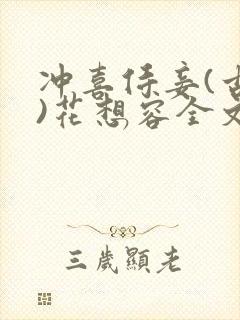 冲喜侍妾(古
)花想容全文
三歲顯老